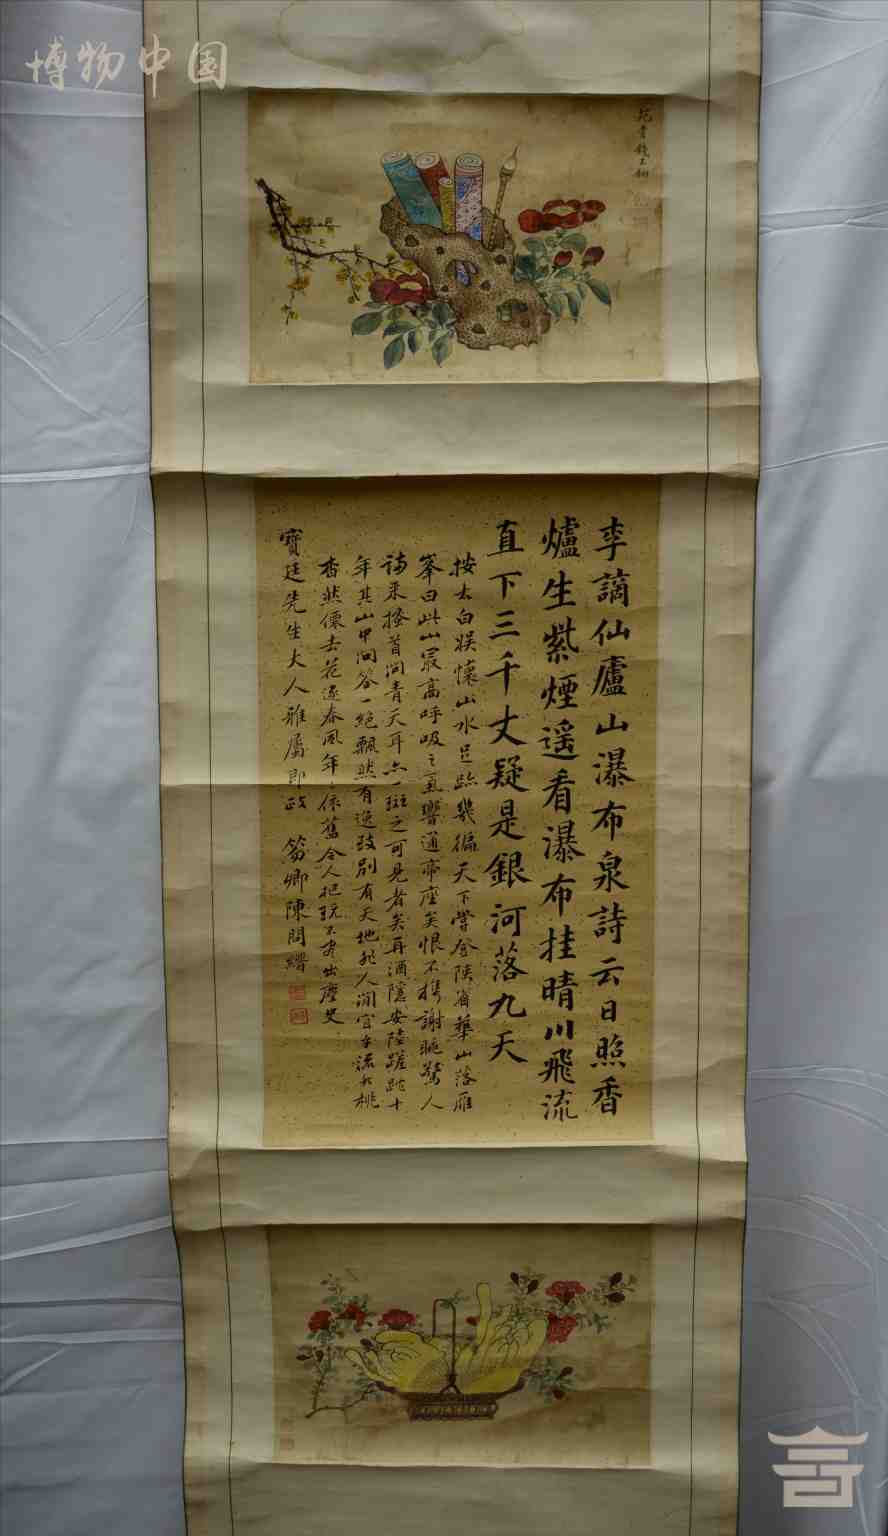 博物中国
李謫仙廬山瀑布泉詩云日照香
爐生紫煙遥看瀑布挂晴川飛流
直下三千丈疑是銀河落九天
按太白娱懷山水足跡幾徧天下嘗登陕省華山落雁
峯曰此山最高呼吸之氣響通帝座矣恨不携謝眺驚人
詩来搔首问青天耳亦一斑之可見者矣再酒隱安陸蹉跎十
年其山中问答一絶飄然有逸致别有天地非人间宜乎流水桃
杳然僊去花逐春風年年依舊令人把玩不
寶廷先生大人雅屬即政 笏卿陳問